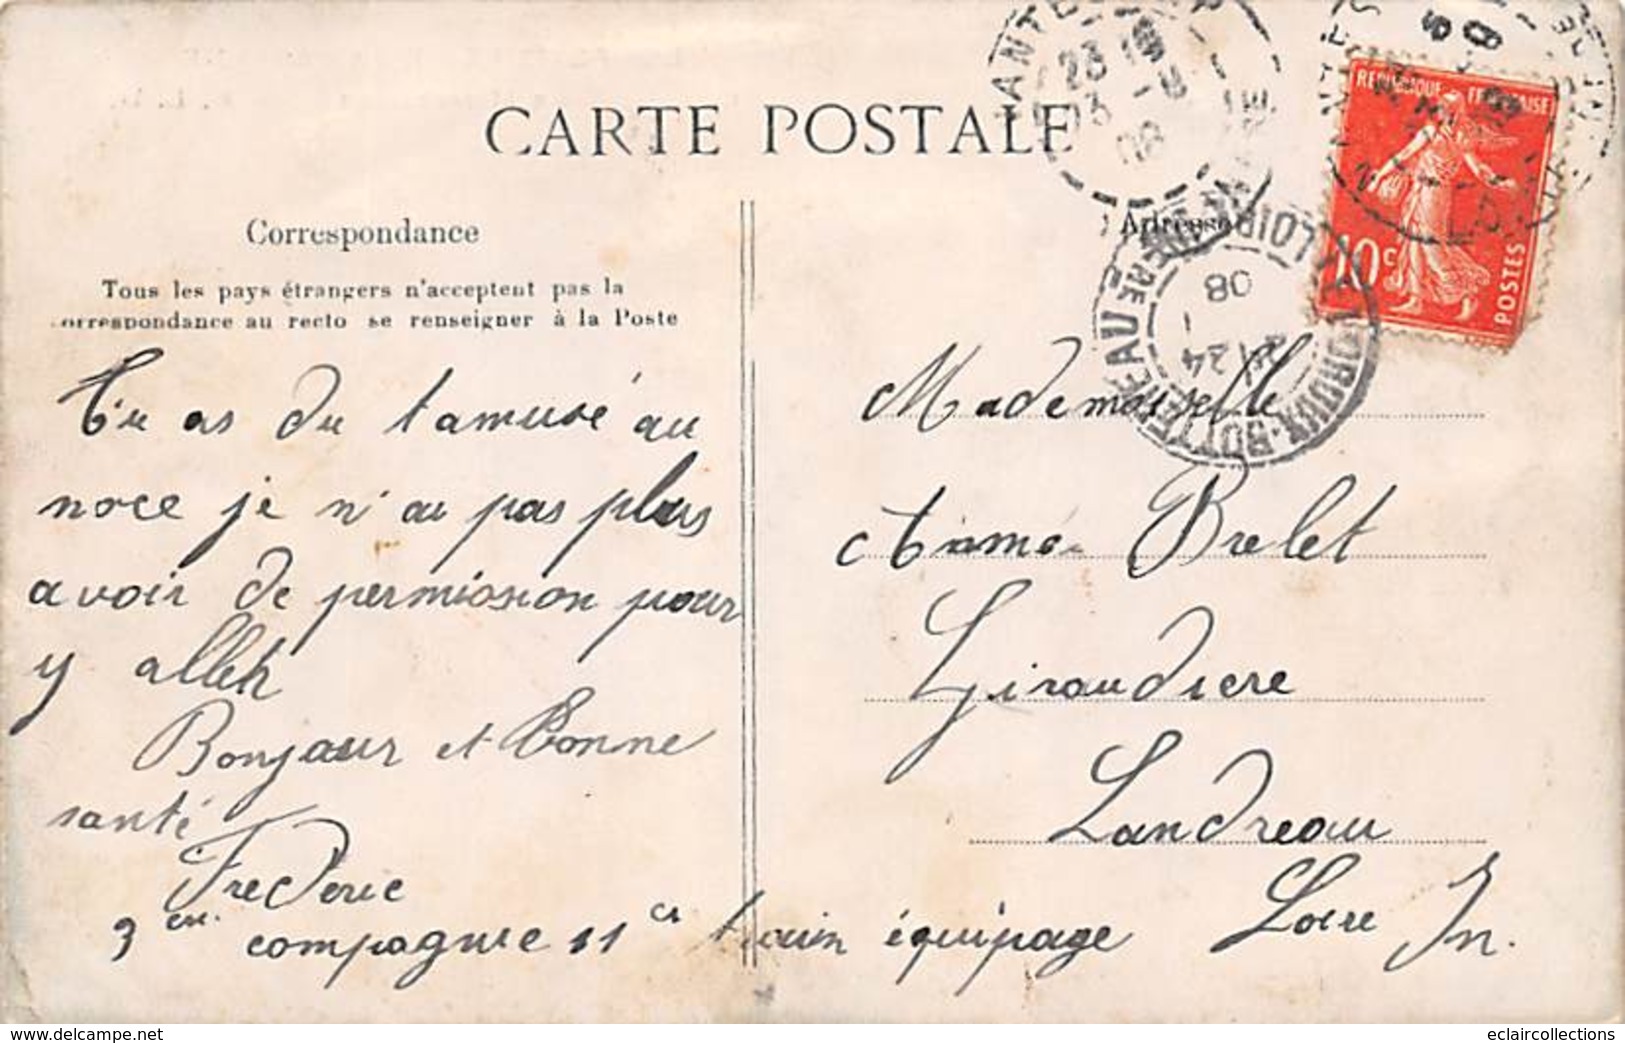 CARTE POSTALE
Correspondance
Tous les pays étrangers n'acceptent pas la
correspondance au recto se renseigner à la Poste
Tu as du t'amusé au
noce je n'ai pas plus
avoir de permission pour
y aller
Bonjour et Bonne
santé
Frederic
3 em compagnie 11 em train équipage
Adresse
Mademoiselle
Aimé Brelet
Giraudiere
Landreau
Loire In.
REPUBLIQUE FRANÇAISE
10c
POSTES
LE LOROUX-BOTTEREAU
LOIRE INFERE
24
08
23
08
eclaircollections